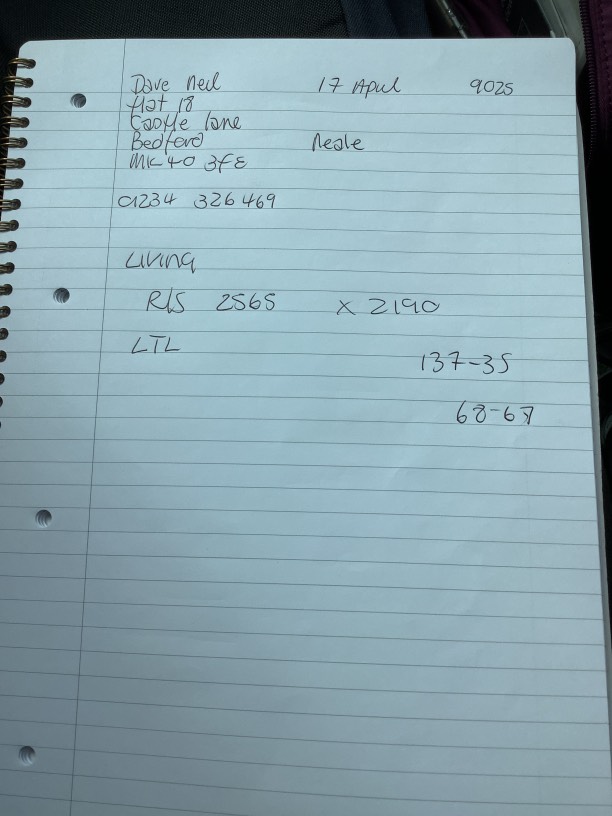 Dave Neil 17 April 9025
flat 18
Castle lane
Bedford Neale
MK40 3FE
01234 326469
Living
R/S 2565 x 2190
LTL
137-35
68-67